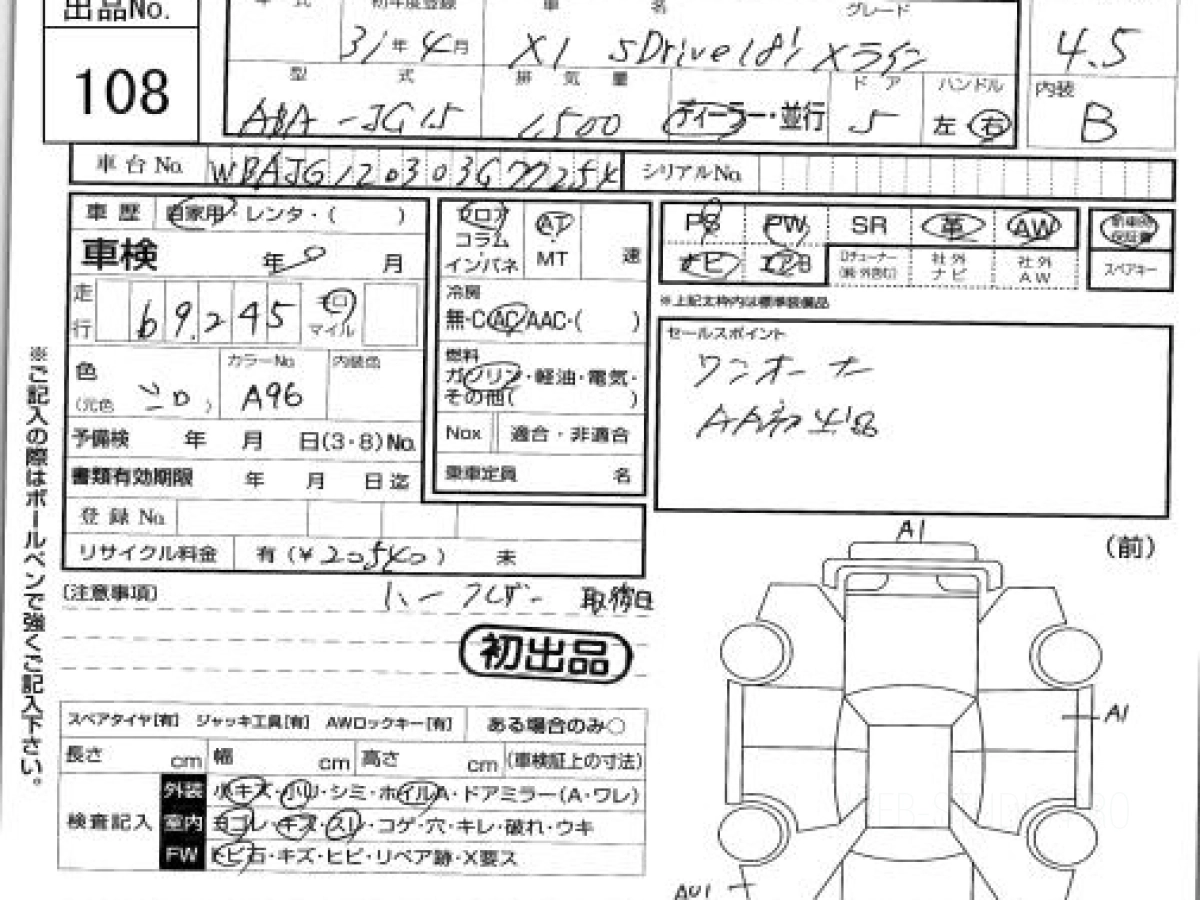 出品No.
108
年 式 初年度登録 車 名 グレード
31年4月 X1 sDrive18i Xライン
4.5
型 式 排 気 量 ドア ハンドル 内装
ABA-JG15 1,500 ディーラー・並行 5 左 右 B
車台No. シリアルNo.
車歴 自家用・レンタ・( )
車検 年 月
走行 69,245 キロ マイル
色 カラーNo. 内装色
(元色 シロ ) A96
予備検 年 月 日(3・8)No.
書類有効期限 年 月 日迄
登録No.
リサイクル料金 有(¥20540) 未
フロア コラム インパネ
AT MT 速
冷房
無・C AC AAC・( )
燃料
ガソリン・軽油・電気・
その他( )
Nox 適合・非適合
乗車定員 名
PS PW SR 革 AW
ナビ エアB Dチューナー (社外含む) 社外ナビ 社外AW
新車時保証書
スペアキー
※上記太枠内は標準装備品
セールスポイント
ワンオーナー
AA初出品
[注意事項]
初出品
※ご記入の際はボールペンで強くご記入下さい。
スペアタイヤ[有] ジャッキ工具[有] AWロックキー[有] ある場合のみ○
長さ cm 幅 cm 高さ cm (車検証上の寸法)
検査記入
外装 小キズ・小凹・シミ・ホイルA・ドアミラー(A・ワレ)
室内 ヨゴレ・キズ・スレ・コゲ・穴・キレ・破れ・ウキ
FW トビ石・キズ・ヒビ・リペア跡・X要ス
A1
(前)
A1
AU1